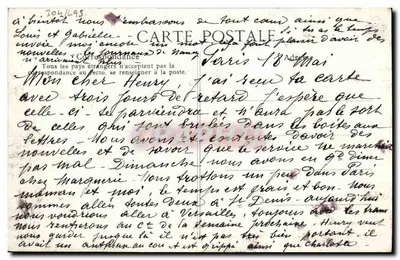 704/695
à bientôt nous t'embrassons de tout cœur ainsi que
Louis et Gabielle
Si tu as le temps
envoie moi encore un mot cela fait plaisir d'avoir des
nouvelles
CARTE POSTALE
Correspondance
Tous les pays étrangers n'acceptent pas la
correspondance au recto, se renseigner à la poste
Paris 18 Mai
Mon cher Henry j'ai reçu ta carte
avec trois jours de retard j'espère que
celle ci te parviendra et n'aura pas le sort
de celles qui sont brulés dans les bureaux
lettres Nous avons d'avoir des
nouvelles et de savoir que le service ne marche
pas mal. Dimanche nous avons eu à dîner
chez Marguerite. Nous trottons un peu dans Paris
maman et moi, le temps est frais et bon. Nous
sommes allés toutes deux à St Denis. aujourd'hui
nous voudrions aller à Versailles, toujours les trams
nous rentrerons au ct de la semaine prochaine. Henry veut
nous garder jusque là il n'est pas très bien portant, il
avait un anthrax au cou et est grippé ainsi que Charlotte